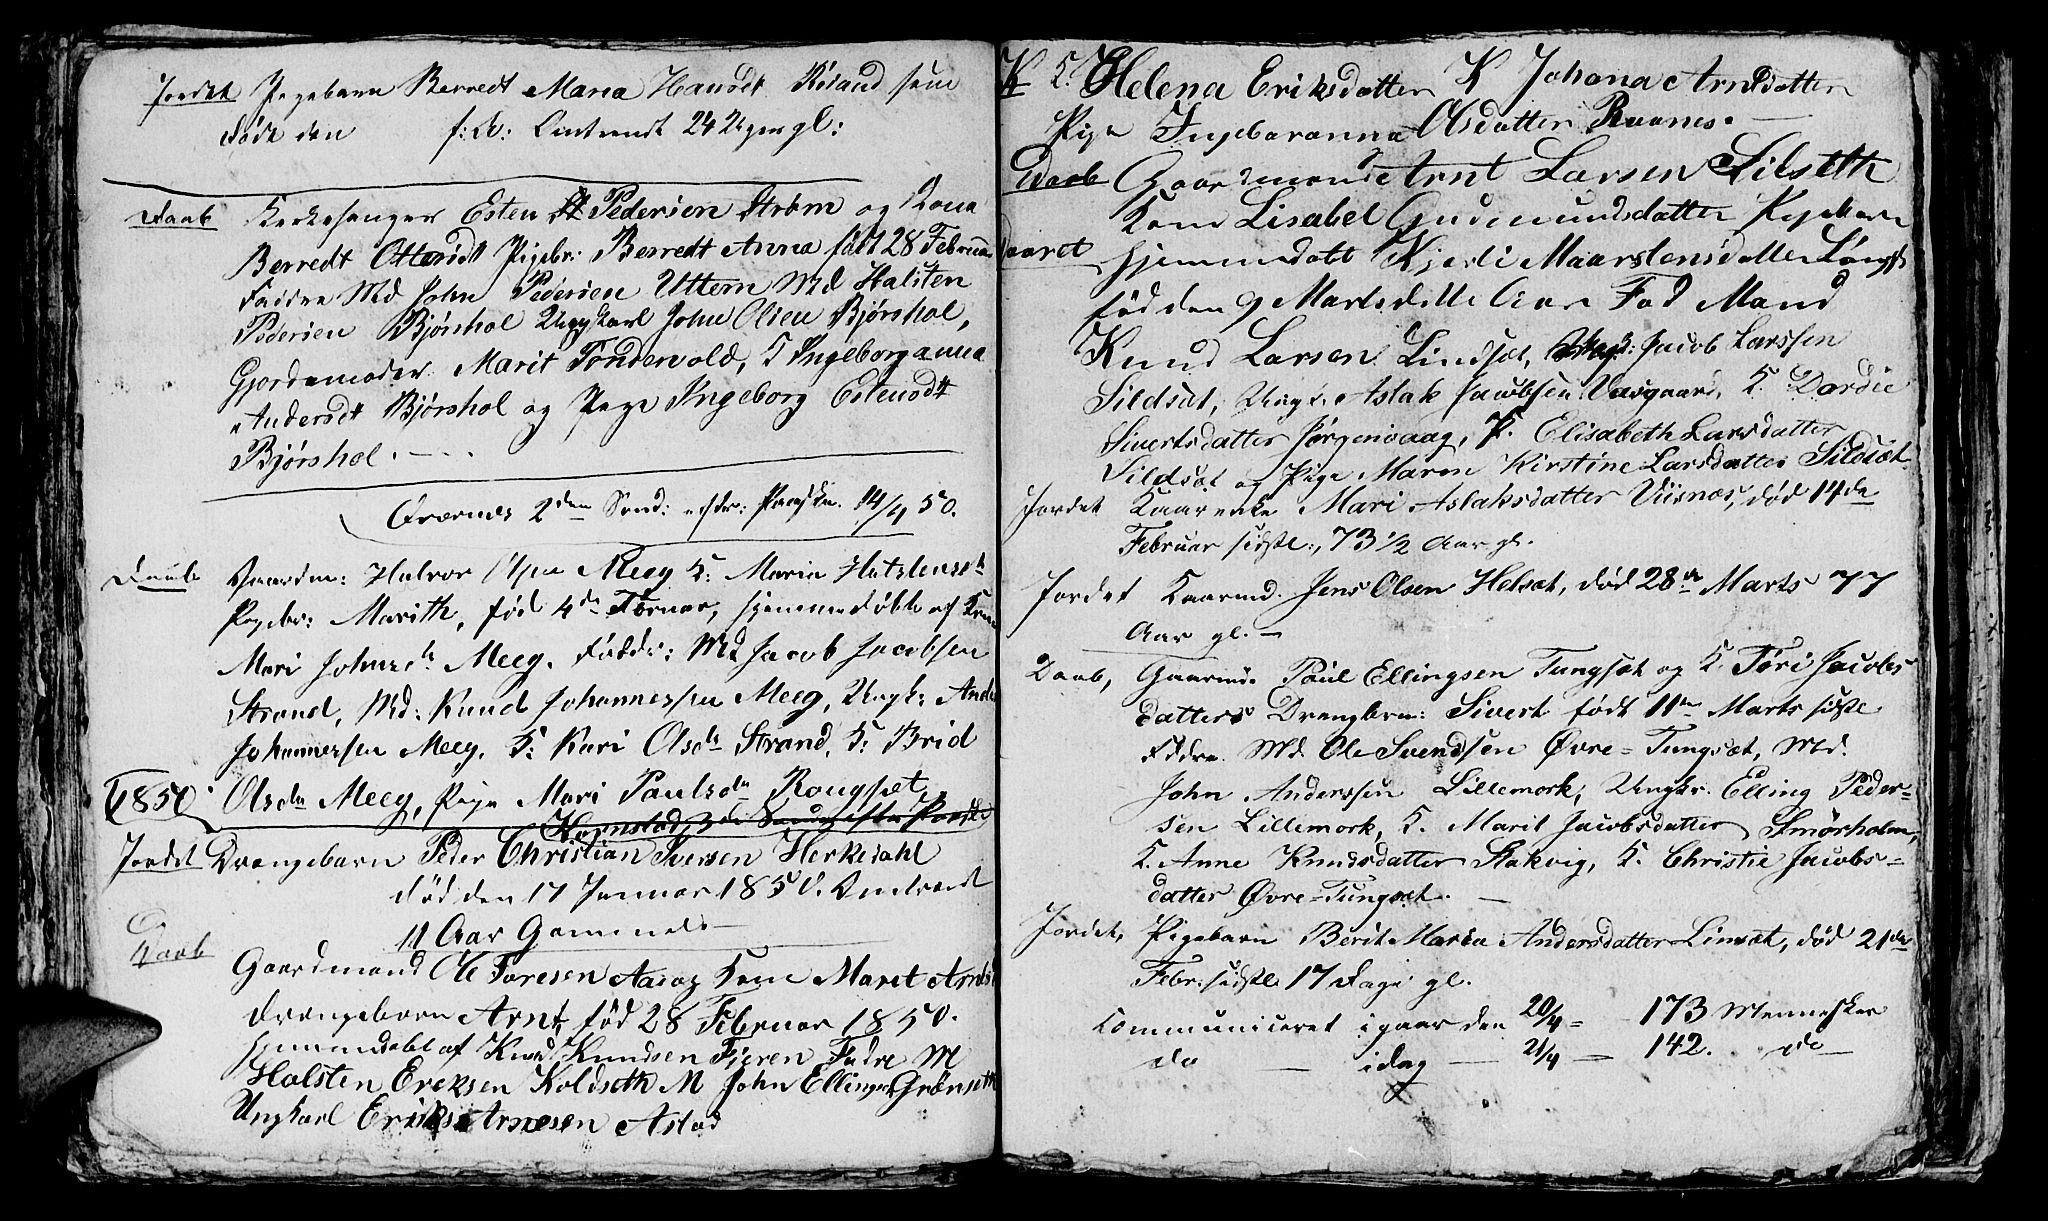 Jordet Pigebarn Berredt Maria Hansdt Röland som
døde den f: A: Omtrendt 24 Uger gl:
Daab Kirkesanger Esten Pedersen Strøm og Kona
Berredt Ottersdt Pigebr: Berredt Anna født 28 Februar
Faddre Md John Pedersen Uttem Md Halsten
Pedersen Bjørshol Ungkarl John Olsen Bjørshol,
Gjordemoder Marit Tøndervold, K Ingeborganna
Andersdt Bjørshol og Pige Ingeborg Estensdtt
Bjørshol.
Qværnes 2den Sønd: efter: Paaske. 14/4 50.
Daab Gaardm: Halvor Meeg K: Maria
Pigebr: Marith, fød 4de Februar, hjemmedøbt af Kone
Mari Johnsdr Meeg. Faddr: Md Jacob Jacobsen
Strand, Md: Knud Johannessen Meeg, Ungk: Anders
Johannessen Meeg, K: Kari Olsdr Strand, K: Brid
1850 Olsdr Meeg, Pige Mari Paulsdr Rougset.
Kornstad 3de Søndag efter Paaske
Jordet Drengebarn Peder Christian Iversen Herkedahl
død den 17 Januar 1850. Omtrendt
11 Aar Gammel
Daab
Gaardmand Ole Toresen Aasag Kone Maret Arnts
drengebarn Arnt, fød 28 Februar 1850.
hjemmdøbt af Knud Knudsen Fieren Fadre M
Halsten Ereksen Koldseth M John Ellingsen Grönseth
Ungkarl Eriks Arnesen Astad
K K. Helena Eriksdatter K Johana Arntsdatter
Pige Ingebaranna Olsdatter Raanes.
Daab Gaardmand Arnt Larsen Silseth
Kone Lisabel Gudmundsdatter Pigebarn
hjemmedøbt Kjerli Maarstensdatter
fød den 9 Marts dette Aar Fad Mand
Knud Larsen Lindset, Ungk: Jacob Larssen
Sildset, Ungk. Aslak Jacobsen Vasgaard, K. Dordie
Sivertsdatter Jørgenvaag, P. Elisabeth Larsdatter
Sildset og Pige Maren Kirstine Larsdatter Sildset
Jordet Kaarenke Mari Aslaksdatter Visnæs, død 14de
Februar sidstl:, 73 1/2 Aar gl.
Jordet Kaarmd. Jens Olsen Helset, død 28de Marts 77
Aar gl. —
Daab, Gaarmd. Paul Ellingsen Tungset og K. Tøri Jacobs
datters Drengbrn: Sivert født 11te Marts sidstl
Fddre. Md. Ole Svendsen Øvre-Tungset, Md.
John Anderssen Lillemork, Ungkr. Elling Peder=
sen Lillemork, K. Marit Jacobsdatter Smørholm,
K. Anne Knudsdatter Stokvig, K. Christie Jacobs=
datter Øvre=Tungset. —
Jordet, Pigebarn Berit Maria Andersdatter Linset, død 21de
Febr: sidstl. 17 Dage gl.
Communiceret igaar den 20/4 = 173 Mennesker
do — idag — 21/4 — 142. do